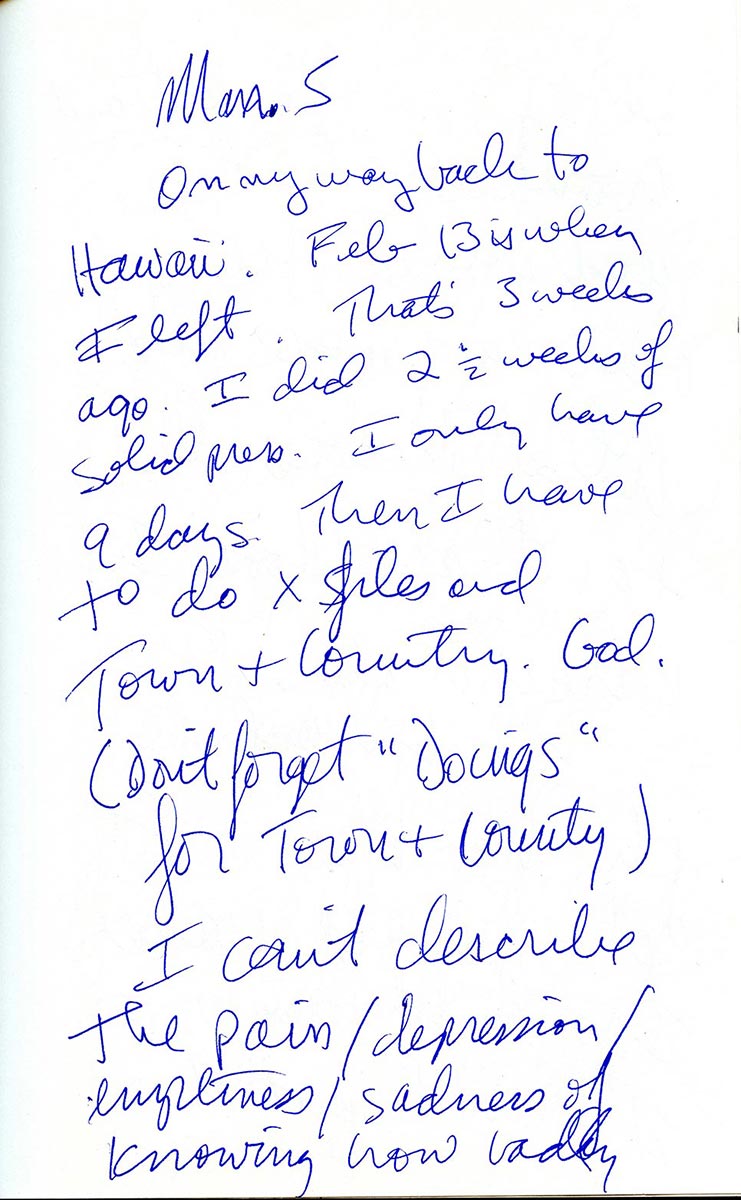 Mar. 5
On my way back to
Hawaii. Feb 13 is when
I left. That's 3 weeks
ago. I did 2 ½ weeks of
solid press. I only have
9 days. Then I have
to do X files and
Town + Country. God.
(Don't forget "Doings"
for Town + County)
I can't describe
the pain/depression/
emptiness/sadness of
knowing how badly